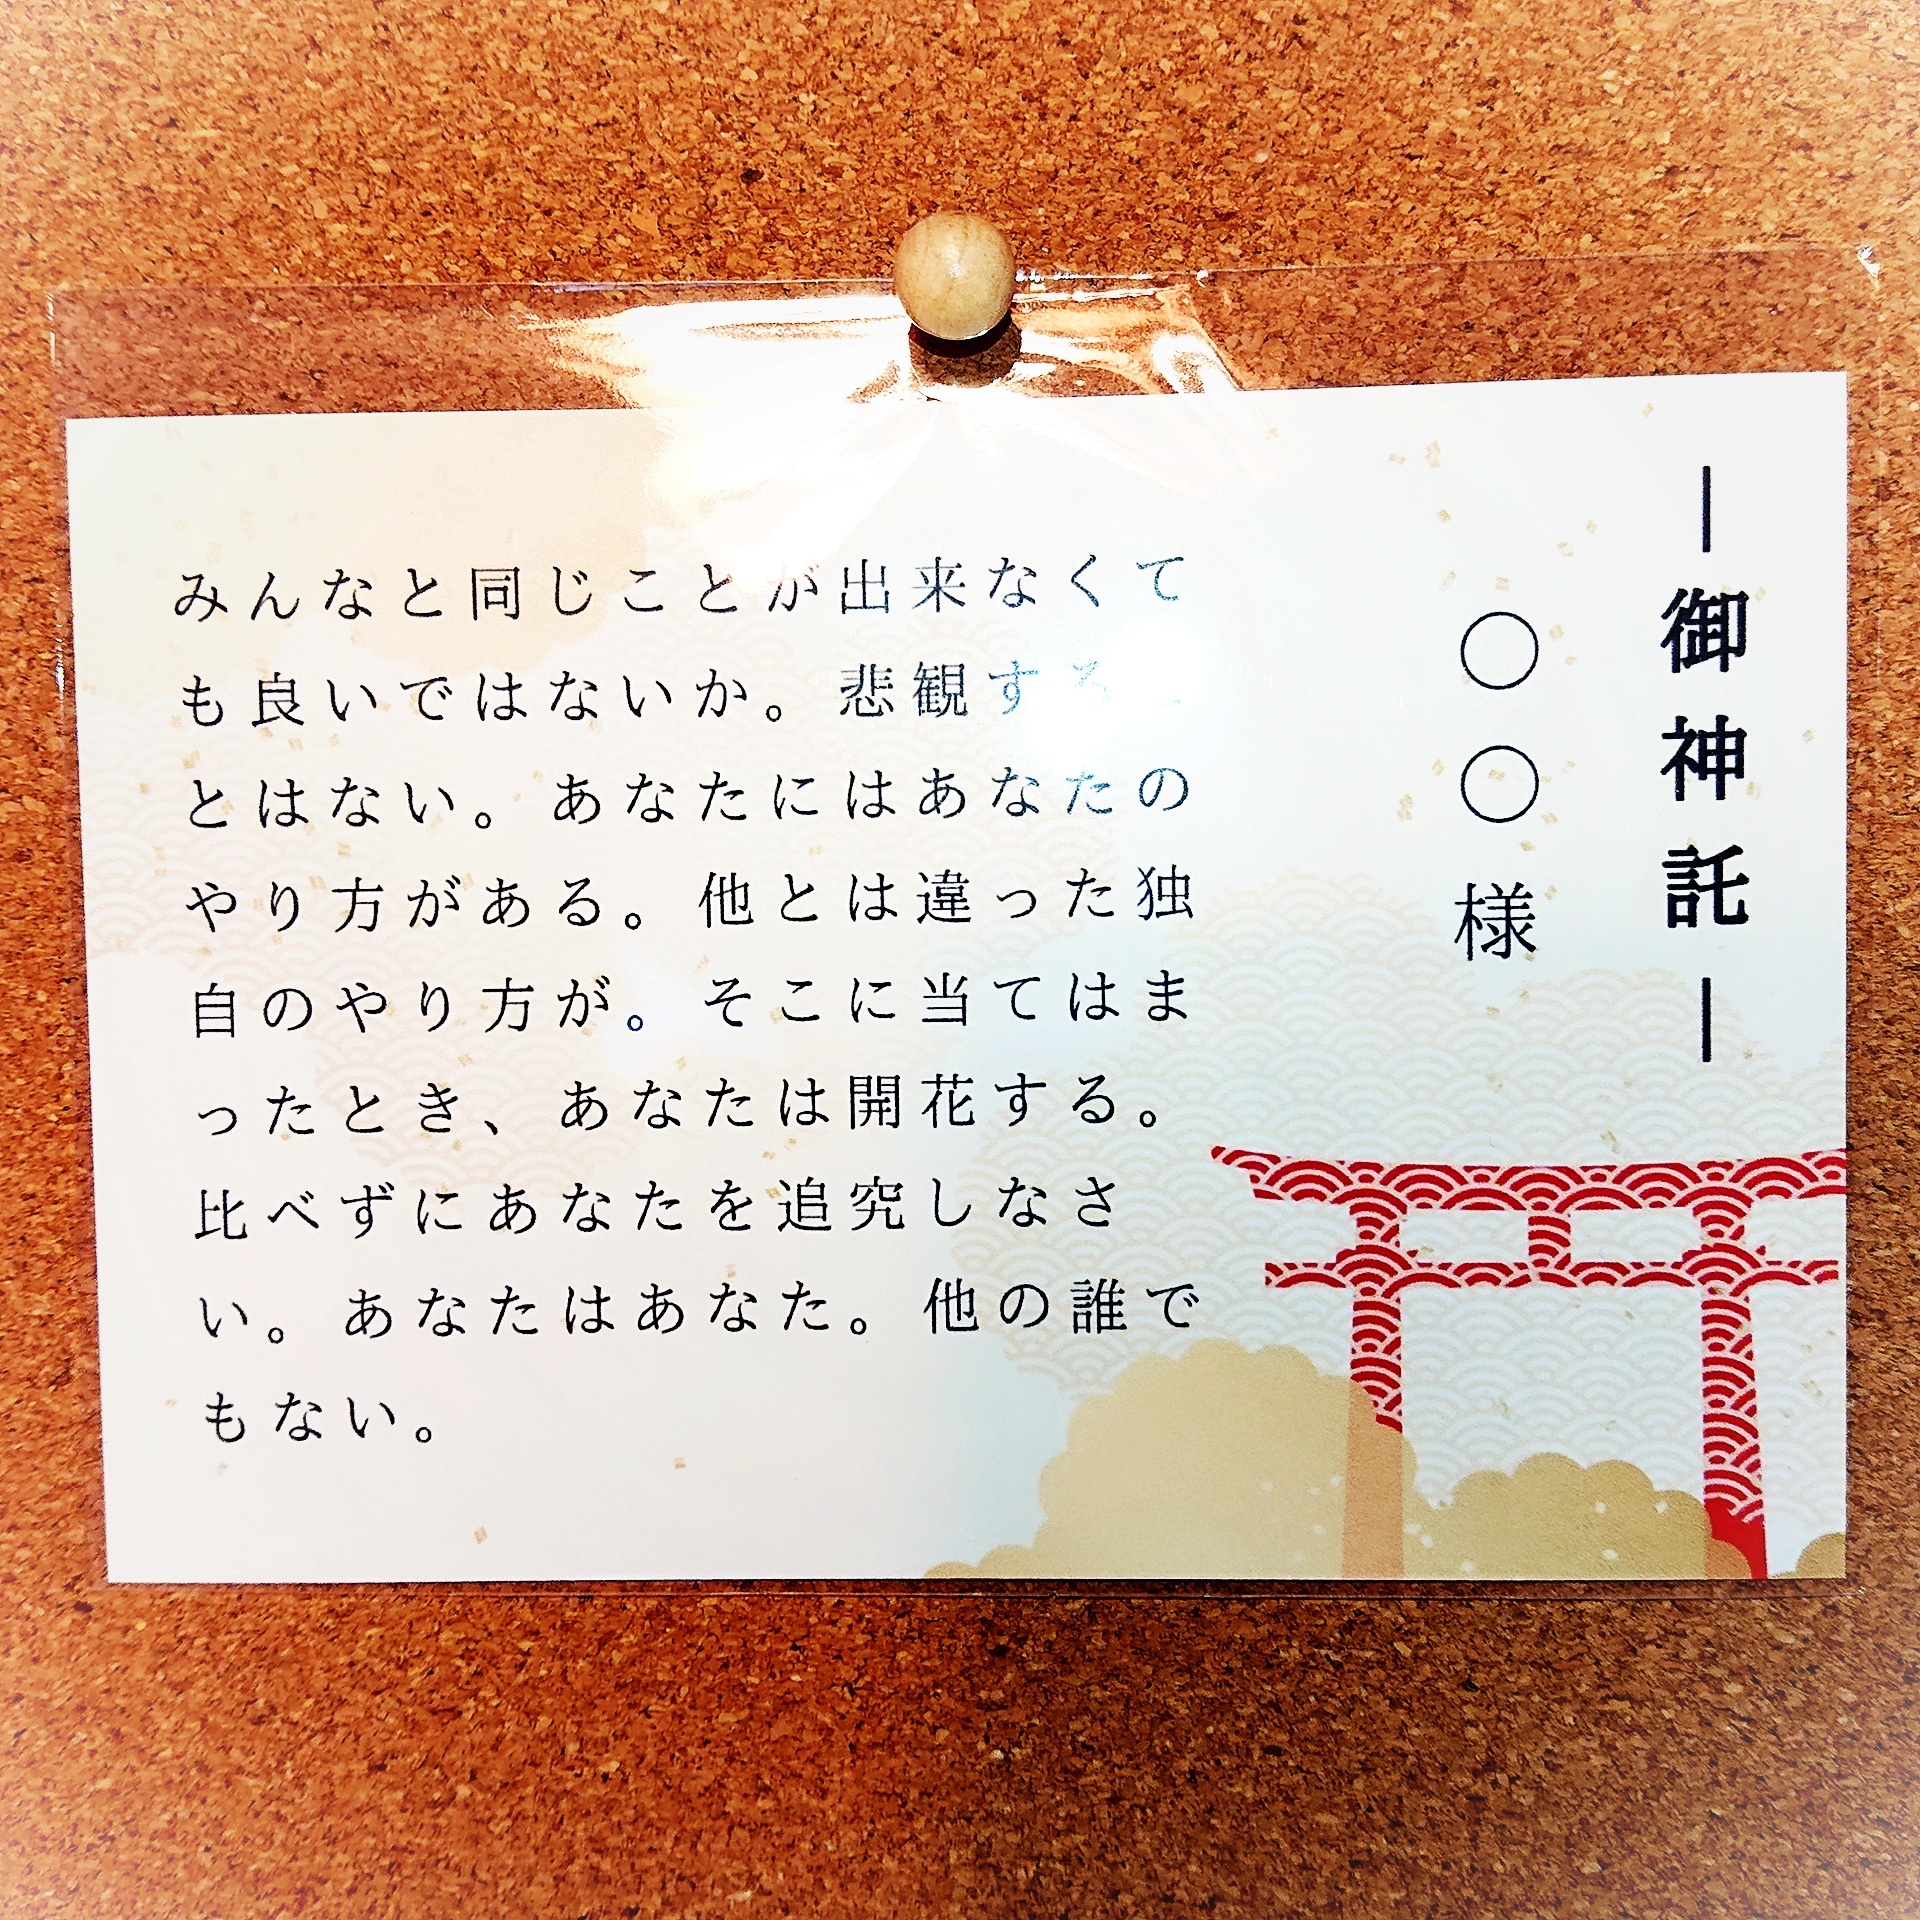 ―御神託―
〇〇様
みんなと同じことが出来なくて
も良いではないか。悲観する
とはない。あなたにはあなたの
やり方がある。他とは違った独
自のやり方が。そこに当てはま
ったとき、あなたは開花する。
比べずにあなたを追究しなさ
い。あなたはあなた。他の誰で
もない。